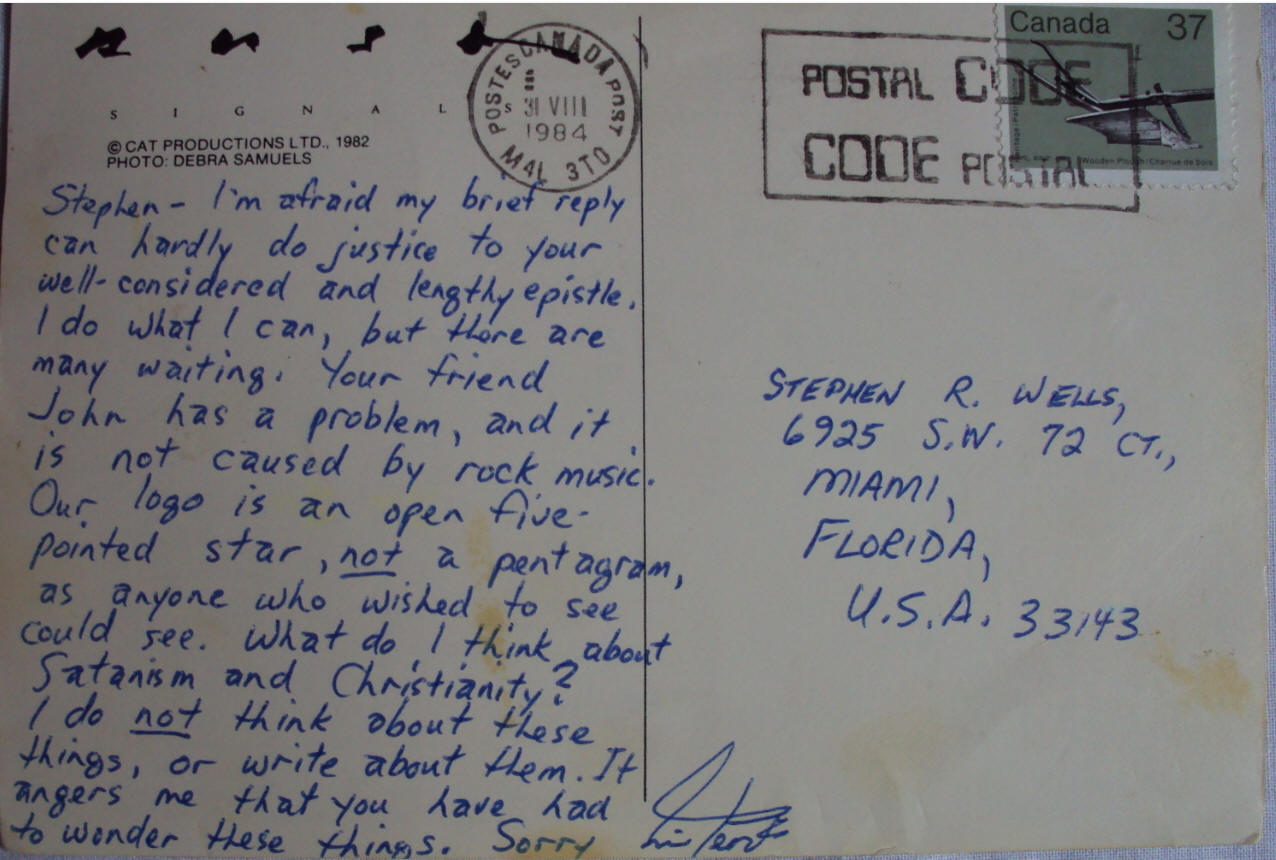 S I G N A L S
© CAT PRODUCTIONS LTD., 1982
PHOTO: DEBRA SAMUELS
POSTES CANADA POST
31 VIII
1984
M4L 3T0
POSTAL CODE
CODE POSTAL
Canada 37
Wooden Plough / Charrue de bois
Stephen – I'm afraid my brief reply
can hardly do justice to your
well-considered and lengthy epistle.
I do what I can, but there are
many waiting. Your friend
John has a problem, and it
is not caused by rock music.
Our logo is an open five-
pointed star, not a pentagram,
as anyone who wished to see
could see. What do I think about
Satanism and Christianity?
I do not think about these
things, or write about them. It
angers me that you have had
to wonder these things. Sorry
STEPHEN R. WELLS,
6925 S.W. 72 CT.,
MIAMI,
FLORIDA,
U.S.A. 33143